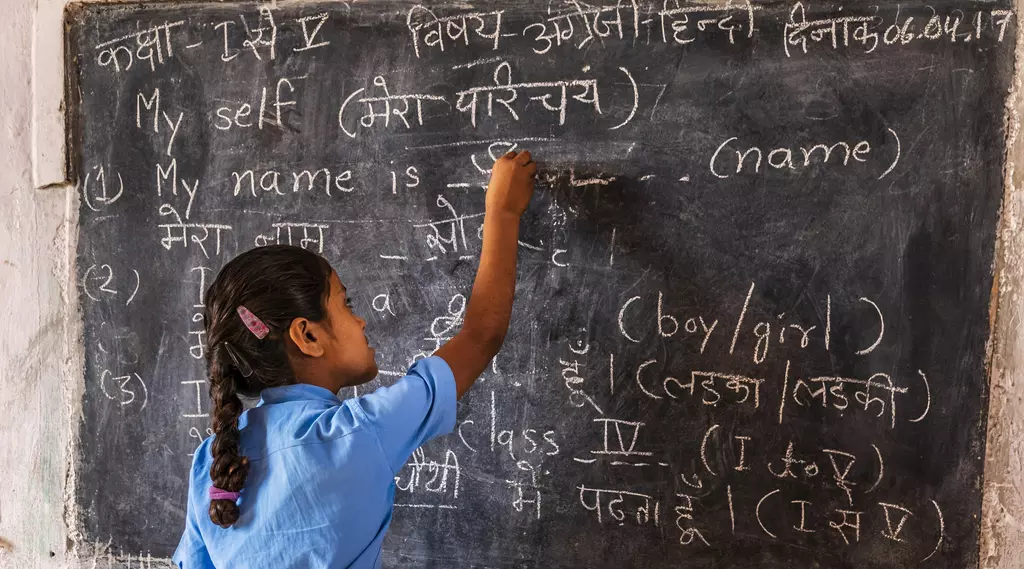 कक्षा - I से V विषय - अंग्रेजी - हिन्दी दिनांक 06.04.17
My self (मेरा परिचय)
(1) My name is (name)
मेरा नाम
(2) I a (boy/girl)
(लड़का / लड़की)
(3) I class IV (I to V)
चौथी में पढ़ता हूँ । (I स V)